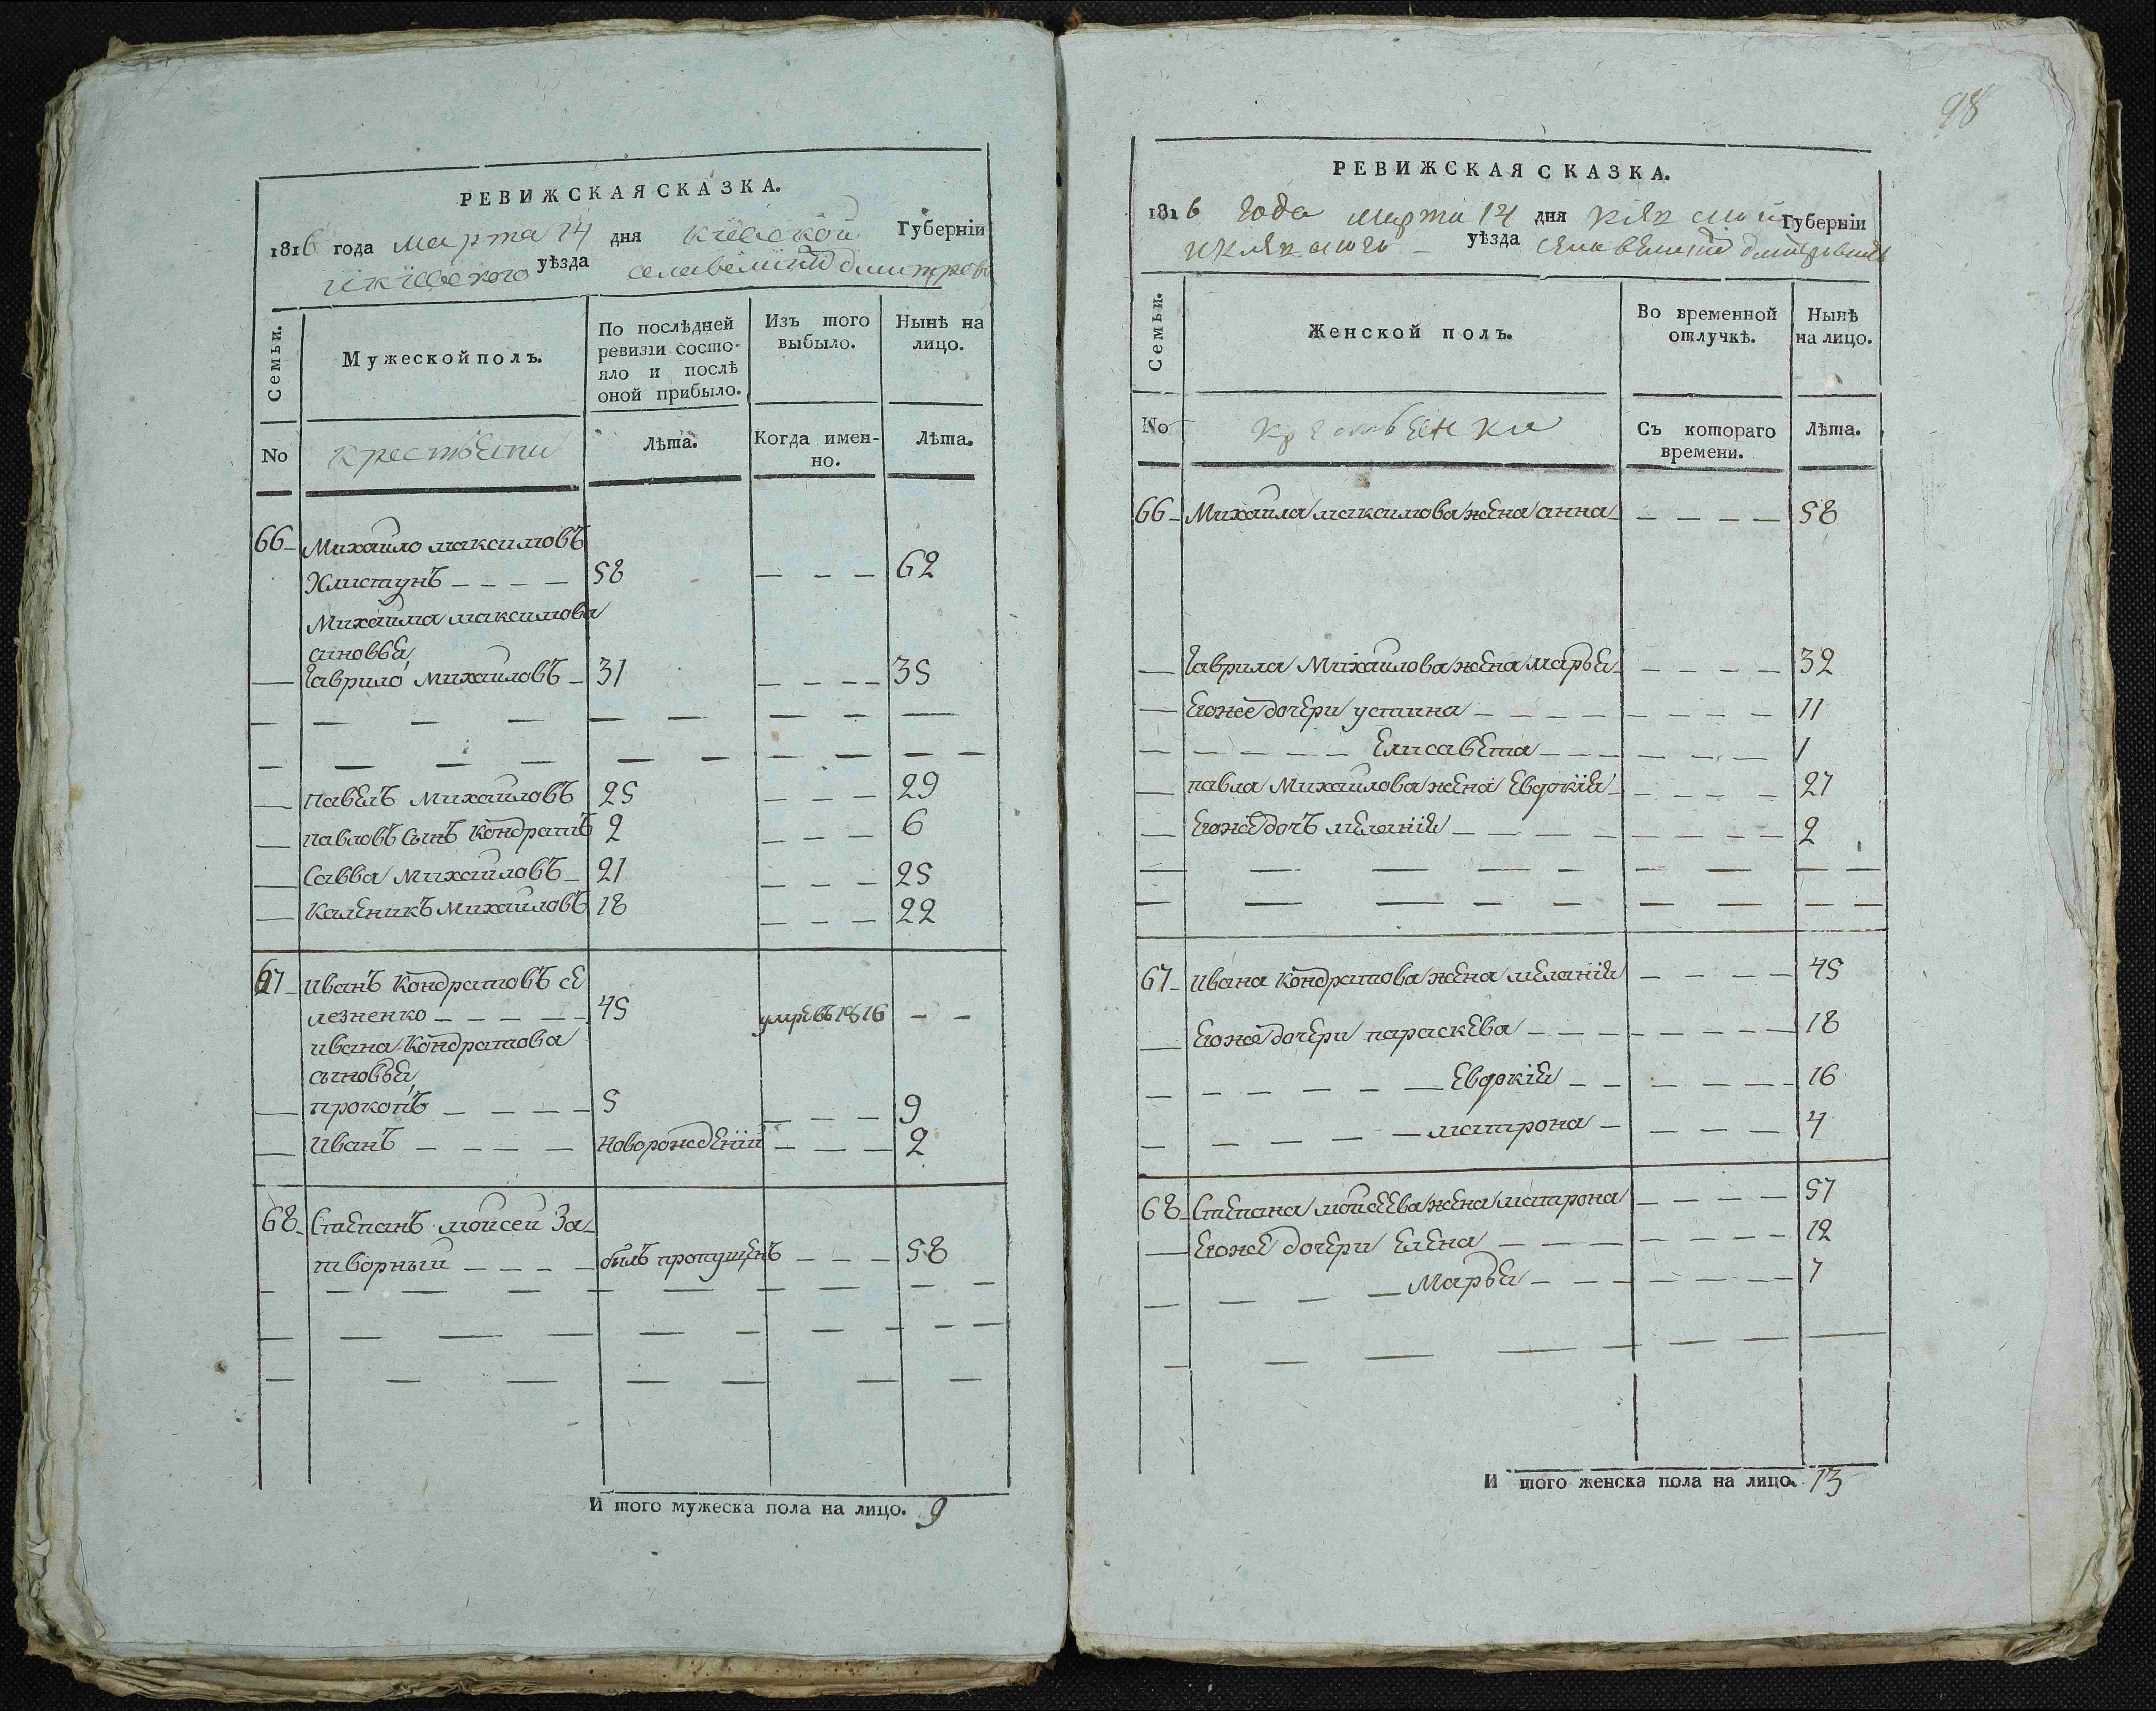 РЕВИЖСКАЯ СКАЗКА.
1816 года марта 14 дня Киевской Губернїи
и Киевского уѣзда села Великой Дмитровки
Семьи.
Мужеской полъ.
По послѣдней ревизїи состояло и послѣ оной прибыло.
Изъ того выбыло.
Нынѣ на лицо.
No
крестьяни
Лѣта.
Когда именно.
Лѣта.
66 Михайло Максимовъ
Хлистунъ 58 62
Михайла Максимова
синовья
Гаврило Михайловъ 31 35
Павелъ Михайловъ 25 29
Павловъ сынъ Кондратъ 2 6
Савва Михайловъ 21 25
Каленикъ Михайловъ 18 22
67 Иванъ Кондратовъ Се
лезненко 45 умре въ 1816
Ивана Кондратова
сыновья
Прокопъ 5 9
Иванъ новорожденїй 2
68 Степанъ Мойсеи За
творный былъ пропущенъ 58
И того мужеска пола на лицо. 9
98
РЕВИЖСКАЯ СКАЗКА.
1816 года марта 14 дня Губернїи
уѣзда села Великой
Семьи.
Женской полъ.
Во временной отлучкѣ.
Нынѣ на лицо.
No
Съ котораго времени.
Лѣта.
66 Михайла Максимова жена Анна 58
Гаврила Михайлова жена Марья 32
Егоже дочери Устина 11
Елисавета 1
Павла Михайлова жена Евдокїя 27
Егоже дочъ Меланїя 2
67 Ивана Кондратова жена Меланїя 45
Егоже дочери Параскева 18
Евдокїя 16
Матрона 4
68 Степана Мойсеева жена Матрона 57
Егоже дочери Елена 12
Марья 7
И того женска пола на лицо. 13